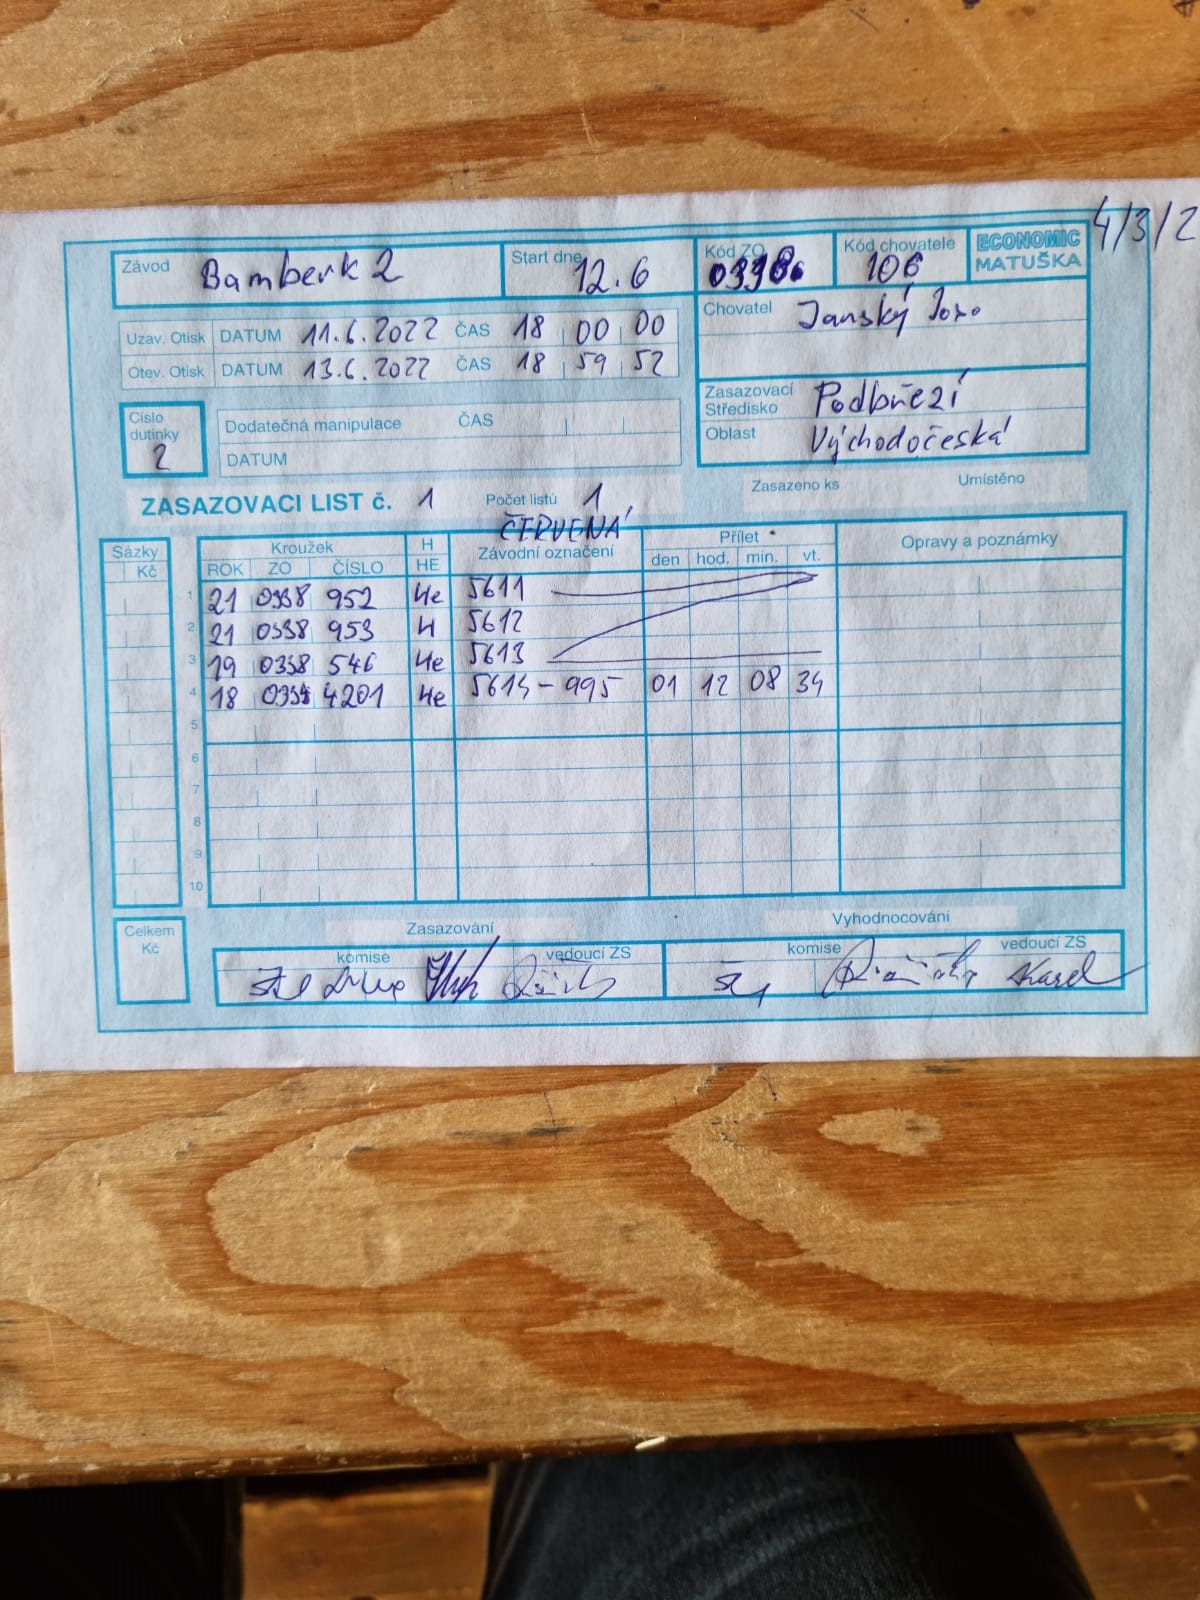 4/3/2
Závod Bamberk 2 Start dne 12.6 Kód ZO Kód chovatele 106 ECONOMIC MATUŠKA
Uzav. Otisk DATUM 11.6.2022 ČAS 18 00 00
Otev. Otisk DATUM 13.6.2022 ČAS 18 59 52
Chovatel Janský
Číslo dutinky 2
Dodatečná manipulace ČAS
DATUM
Zasazovací Středisko Podbřezí
Oblast Východočeská
ZASAZOVACI LIST č. 1 Počet listů 1 Zasazeno ks Umístěno
ČERVENÁ
Sázky Kroužek H Závodní označení Přílet Opravy a poznámky
Kč ROK ZO ČÍSLO HE den hod. min. vt.
1 21 0338 952 He 5611
2 21 0338 953 H 5612
3 19 0338 546 He 5613
4 18 4201 He 5614 - 995 01 12 08 34
5
6
7
8
9
10
Celkem Kč
Zasazování Vyhodnocování
komise vedoucí ZS komise vedoucí ZS
Karel